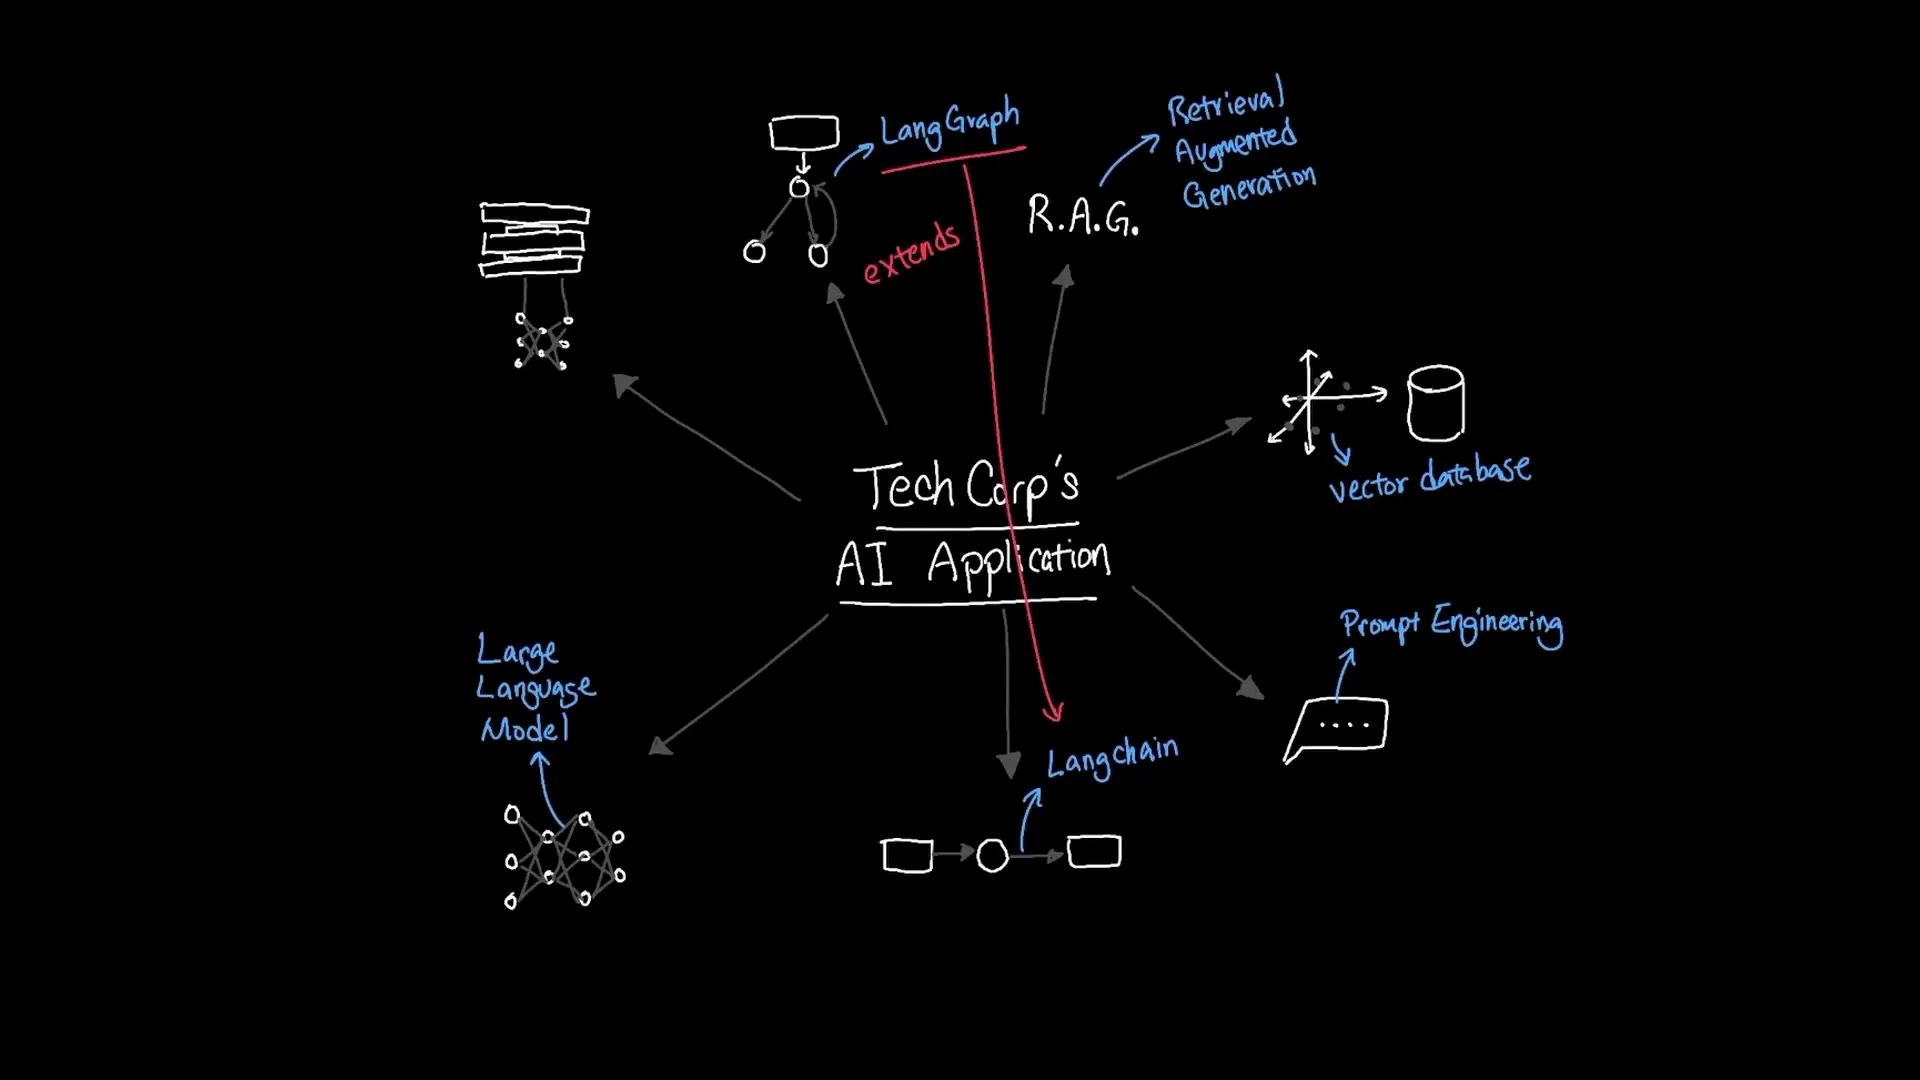 LangGraph
Retrieval
Augmented
Generation
R.A.G.
extends
Tech Corp's
AI Application
vector database
Prompt Engineering
Large
Language
Model
Langchain